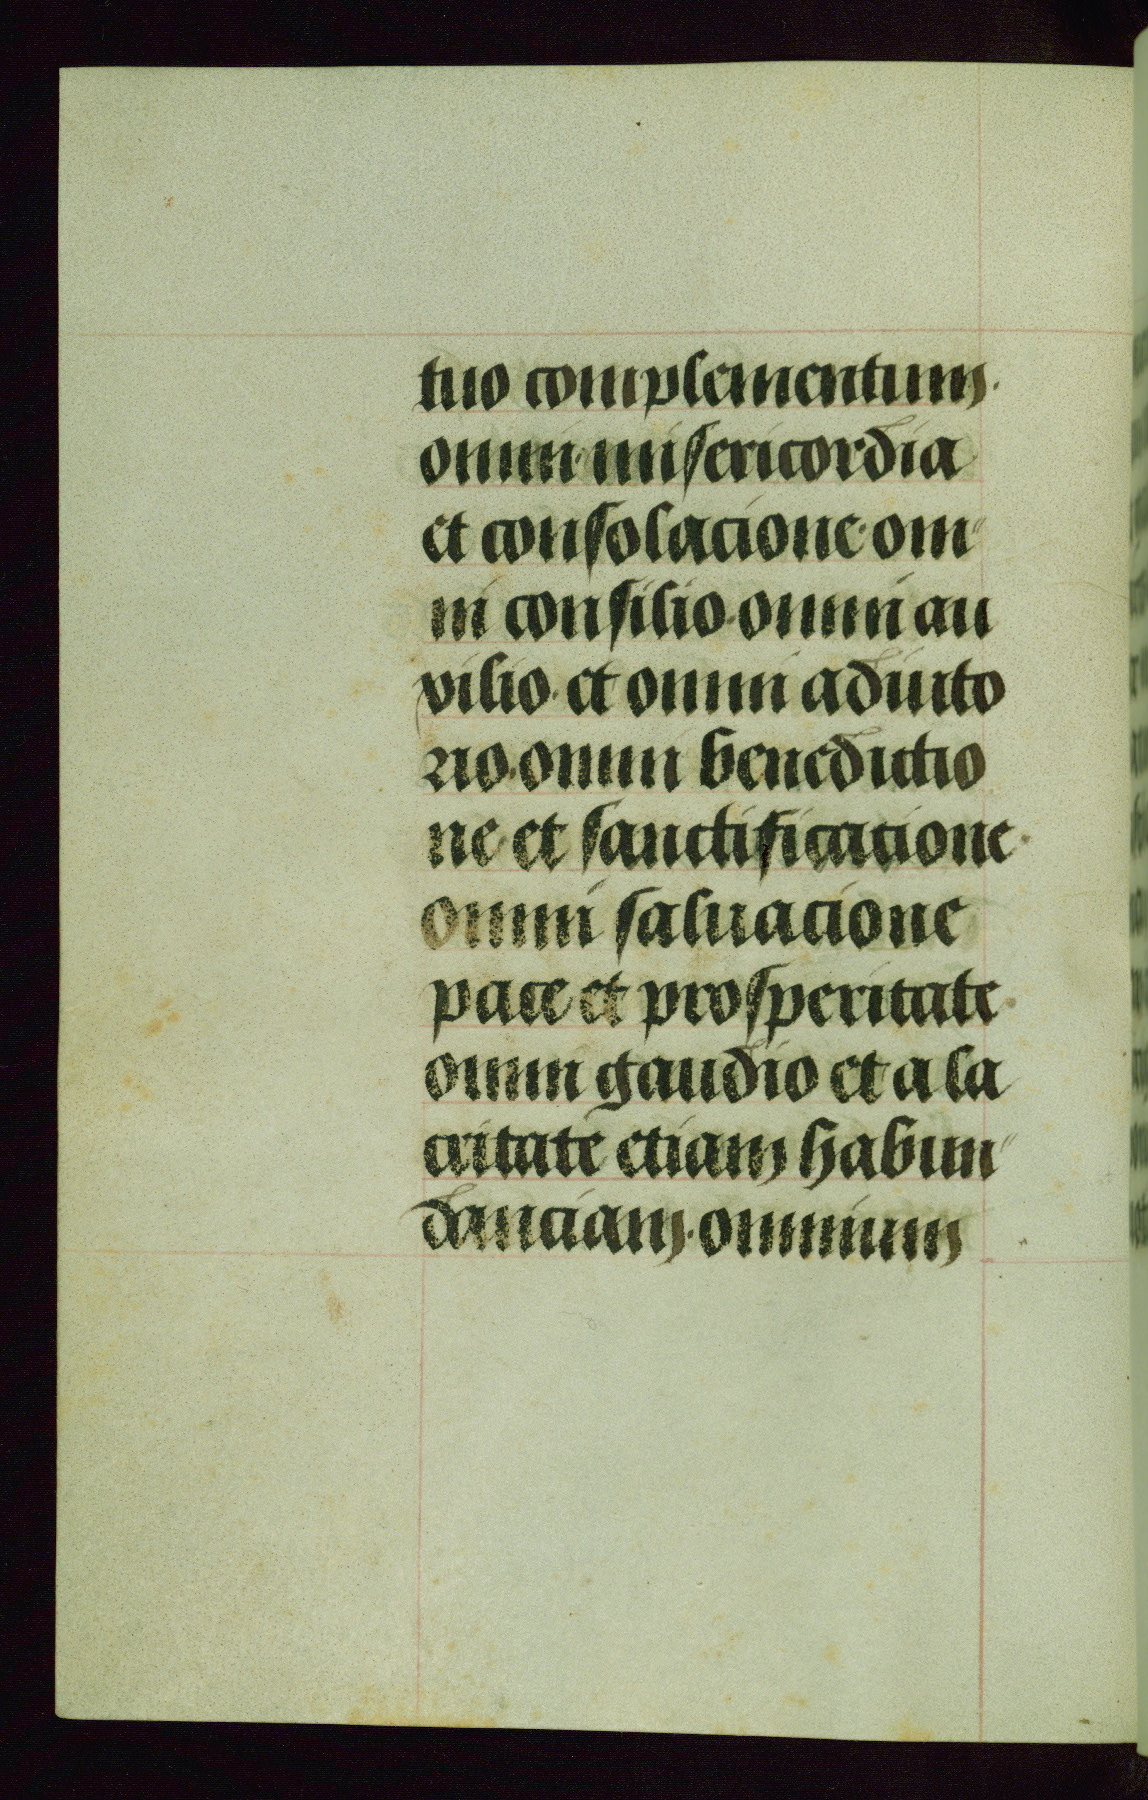 tuo complementum.
omni misericordia
et consolacione om
ni consilio omni au
vilio et omni adiuto
rio omni benedictio
ne et sanctificatione
omni saluacione
pace et prosperitate
omni gaudio et ala
critate etiam habun
danciam omnium